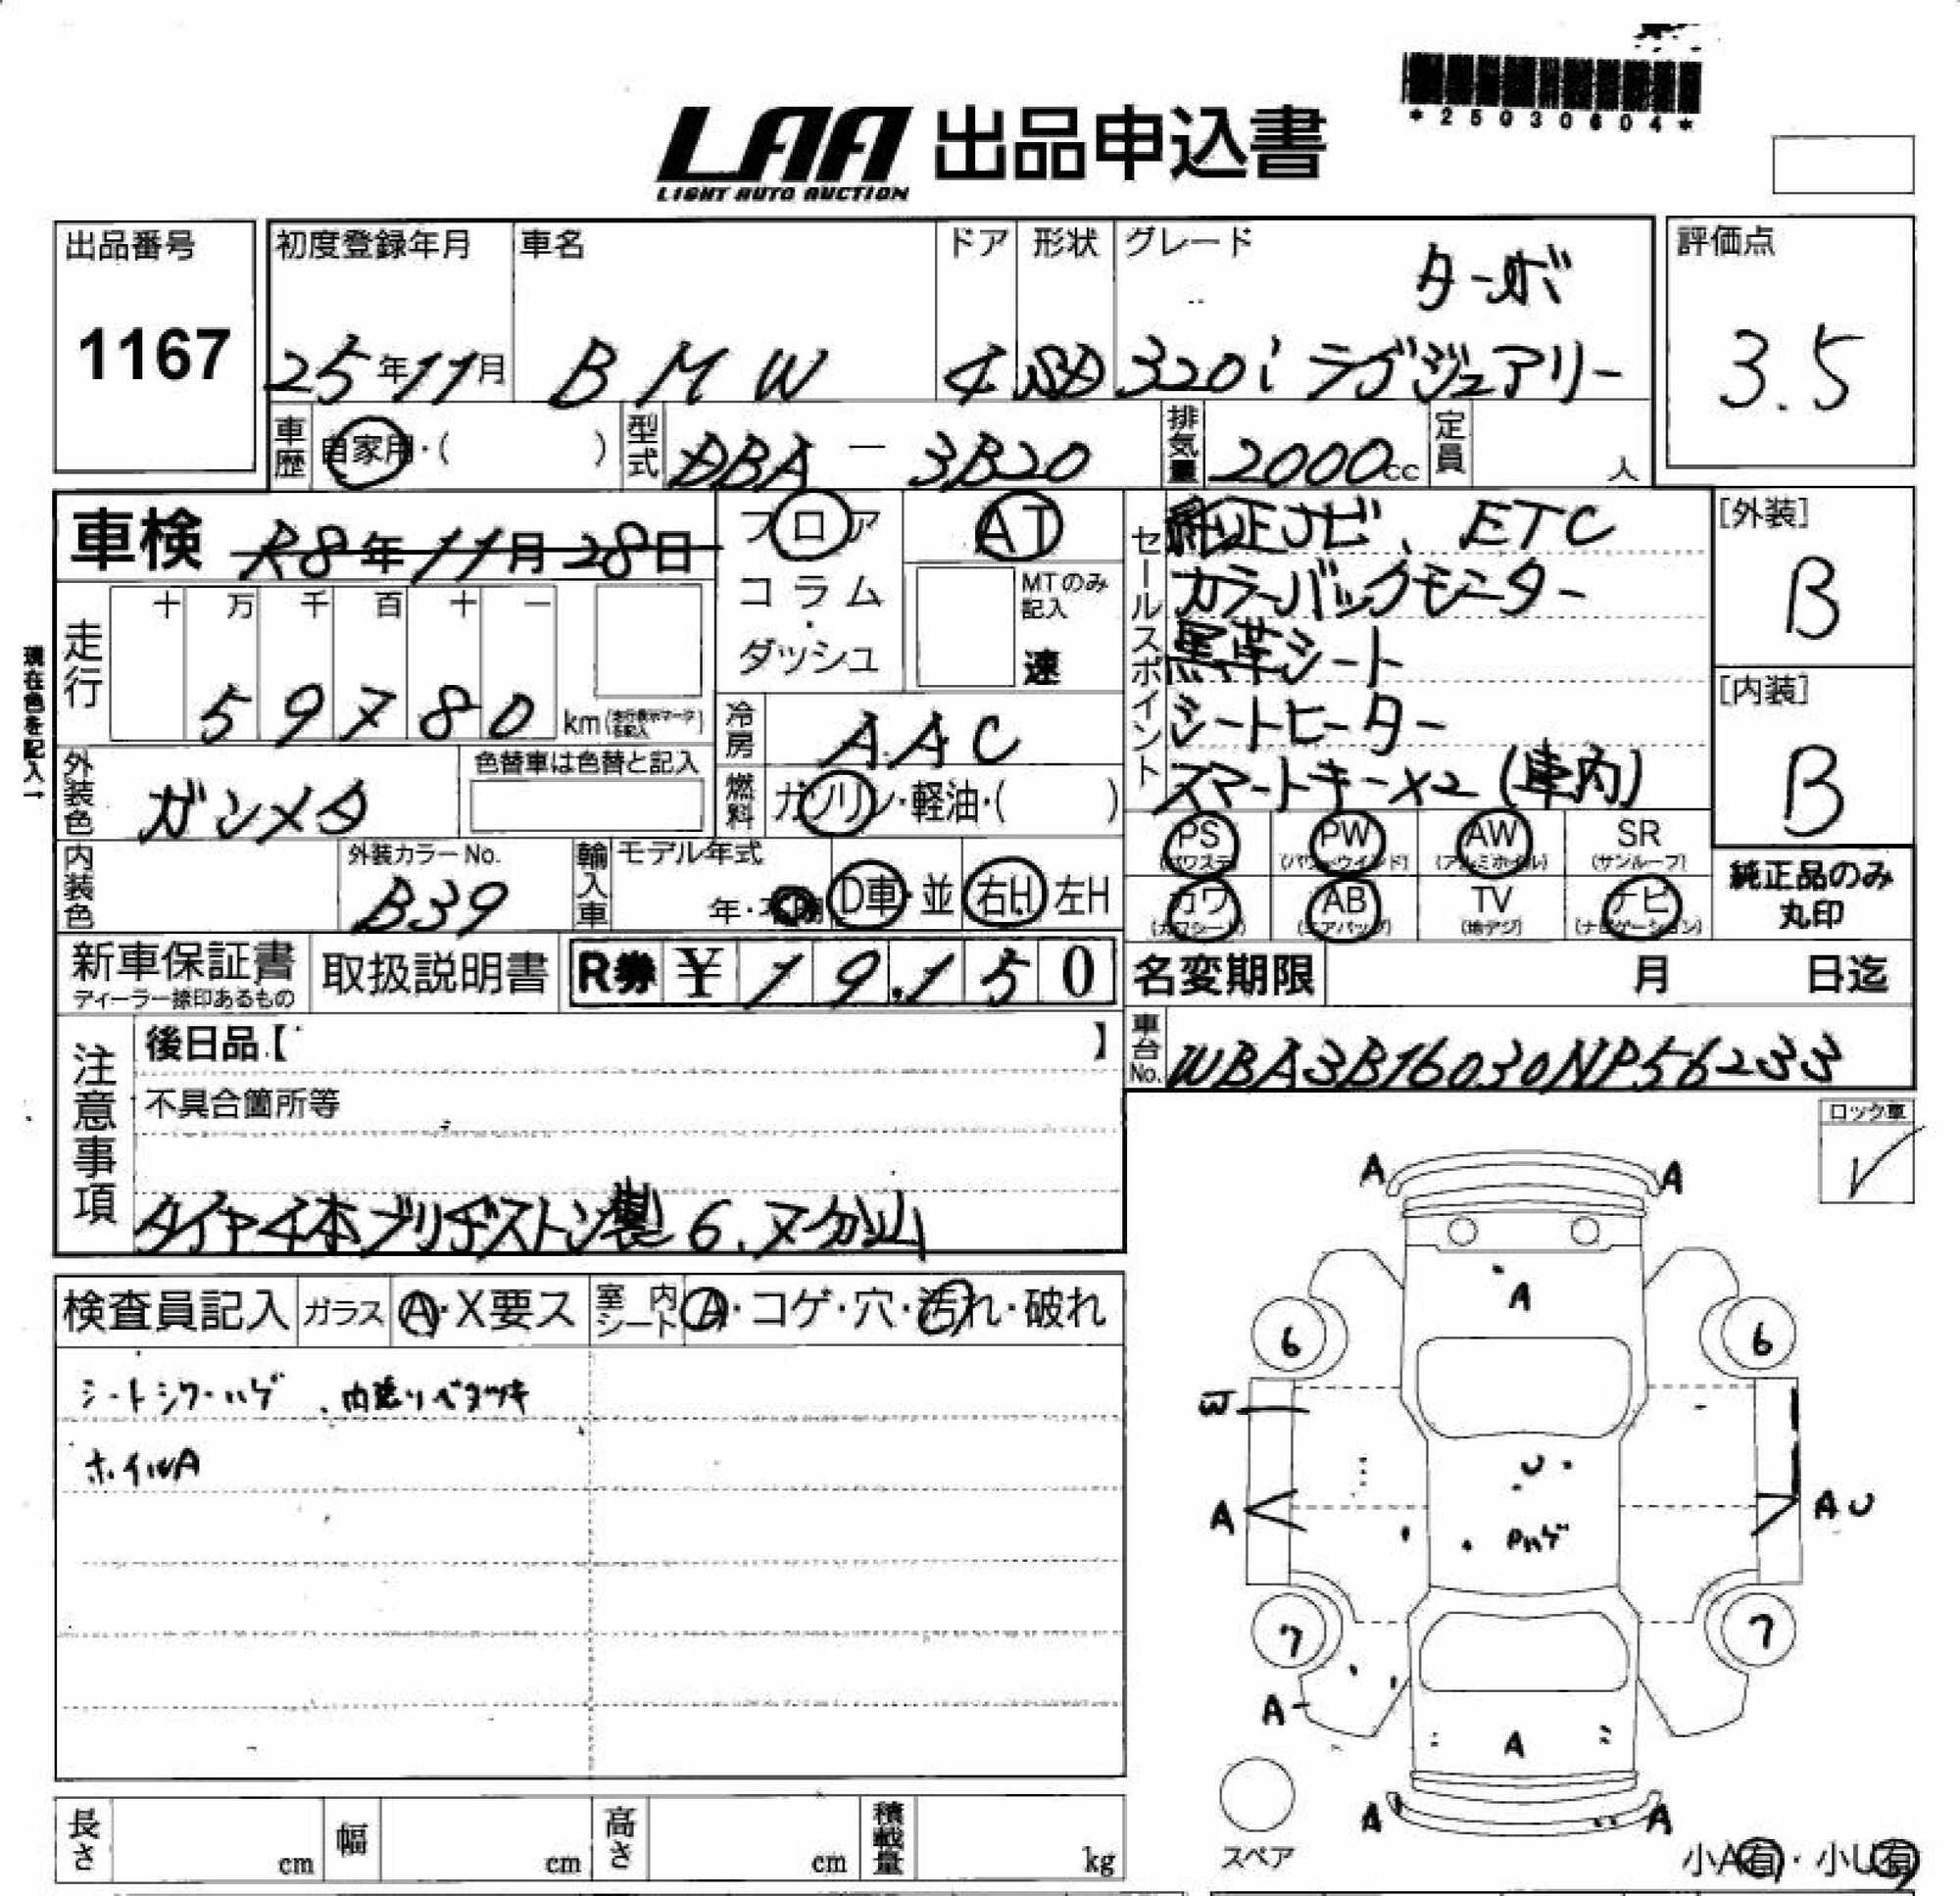 *25030604*
LAA 出品申込書
LIGHT AUTO AUCTION
出品番号
1167
初度登録年月
25年11月
車名
BMW
ドア
4
形状
SD
グレード
ターボ
320i ラグジュアリー
評価点
3.5
車歴 自家用・( )
型式 DBA - 3B20
排気量 2000cc
定員 人
車検 R8年11月28日
フロア
コラム
・
ダッシュ
AT
MTのみ記入
速
セールスポイント
純正ナビ、ETC
カラーバックモニター
黒革シート
シートヒーター
スマートキー×2 (車内)
[外装]
B
[内装]
B
現在色を記入→
走行
十 万 千 百 十 一
5 9 7 8 0 km
冷房 AAC
外装色 ガンメタ
色替車は色替と記入
燃料 ガソリン・軽油・( )
内装色
外装カラーNo.
B39
輸入車
モデル年式
年・不明
D車・並
右H 左H
PS (パワステ)
PW (パワーウインド)
AW (アルミホイル)
SR (サンルーフ)
カワ (カワシート)
AB (エアバッグ)
TV (地デジ)
ナビ (ナビゲーション)
純正品のみ
丸印
新車保証書
ディーラー捺印あるもの
取扱説明書
R券 ¥ 19,150
名変期限 月 日迄
注意事項
後日品【 】
不具合箇所等
タイヤ4本ブリヂストン製 6.7分山
車台No. WBA3B16030NP56233
ロック車
検査員記入
ガラス A・X要ス
室内シート A・コゲ・穴・汚れ・破れ
シートシワ・ハゲ、内張りベタツキ
ホイルA
A A
A
6 6
W
U
A AU
Pハゲ
7 7
A
A
A A
スペア
小A有・小U有
長さ cm
幅 cm
高さ cm
積載量 kg